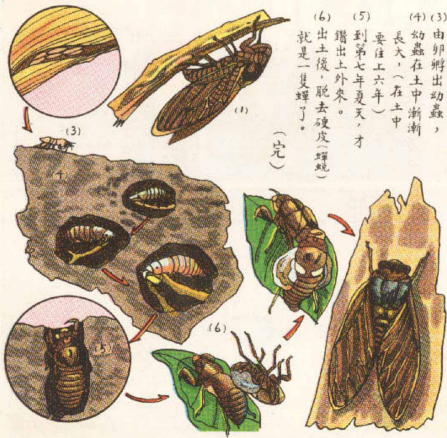 (3)由卵孵出幼蟲，
(4)幼蟲在土中漸漸
長大，(在土中
要住上六年)
(5)到第七年夏天，才
鑽出土外來。
(6)出土後，脫去硬皮(蟬蛻)
就是一隻蟬了。
(完)
(1)
(3)
4
(5)
(6)